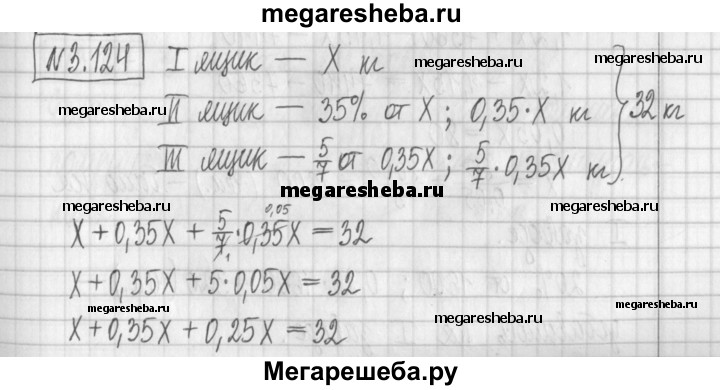 megaresheba.ru
№3.124 I ящик — X кг
megaresheba.ru
megaresheba.ru II ящик — 35% от X; 0,35·X кг megaresheba.ru 32 кг
III ящик — 5/7 от 0,35X; 5/7·0,35X кг
megaresheba.ru
megaresheba.ru megaresheba.ru
0,05
X+0,35X+5/7·0,35X=32
1
X+0,35X+5·0,05X=32
megaresheba.ru
megaresheba.ru megaresheba.ru
X+0,35X+0,25X=32
Мегарешеба.ру